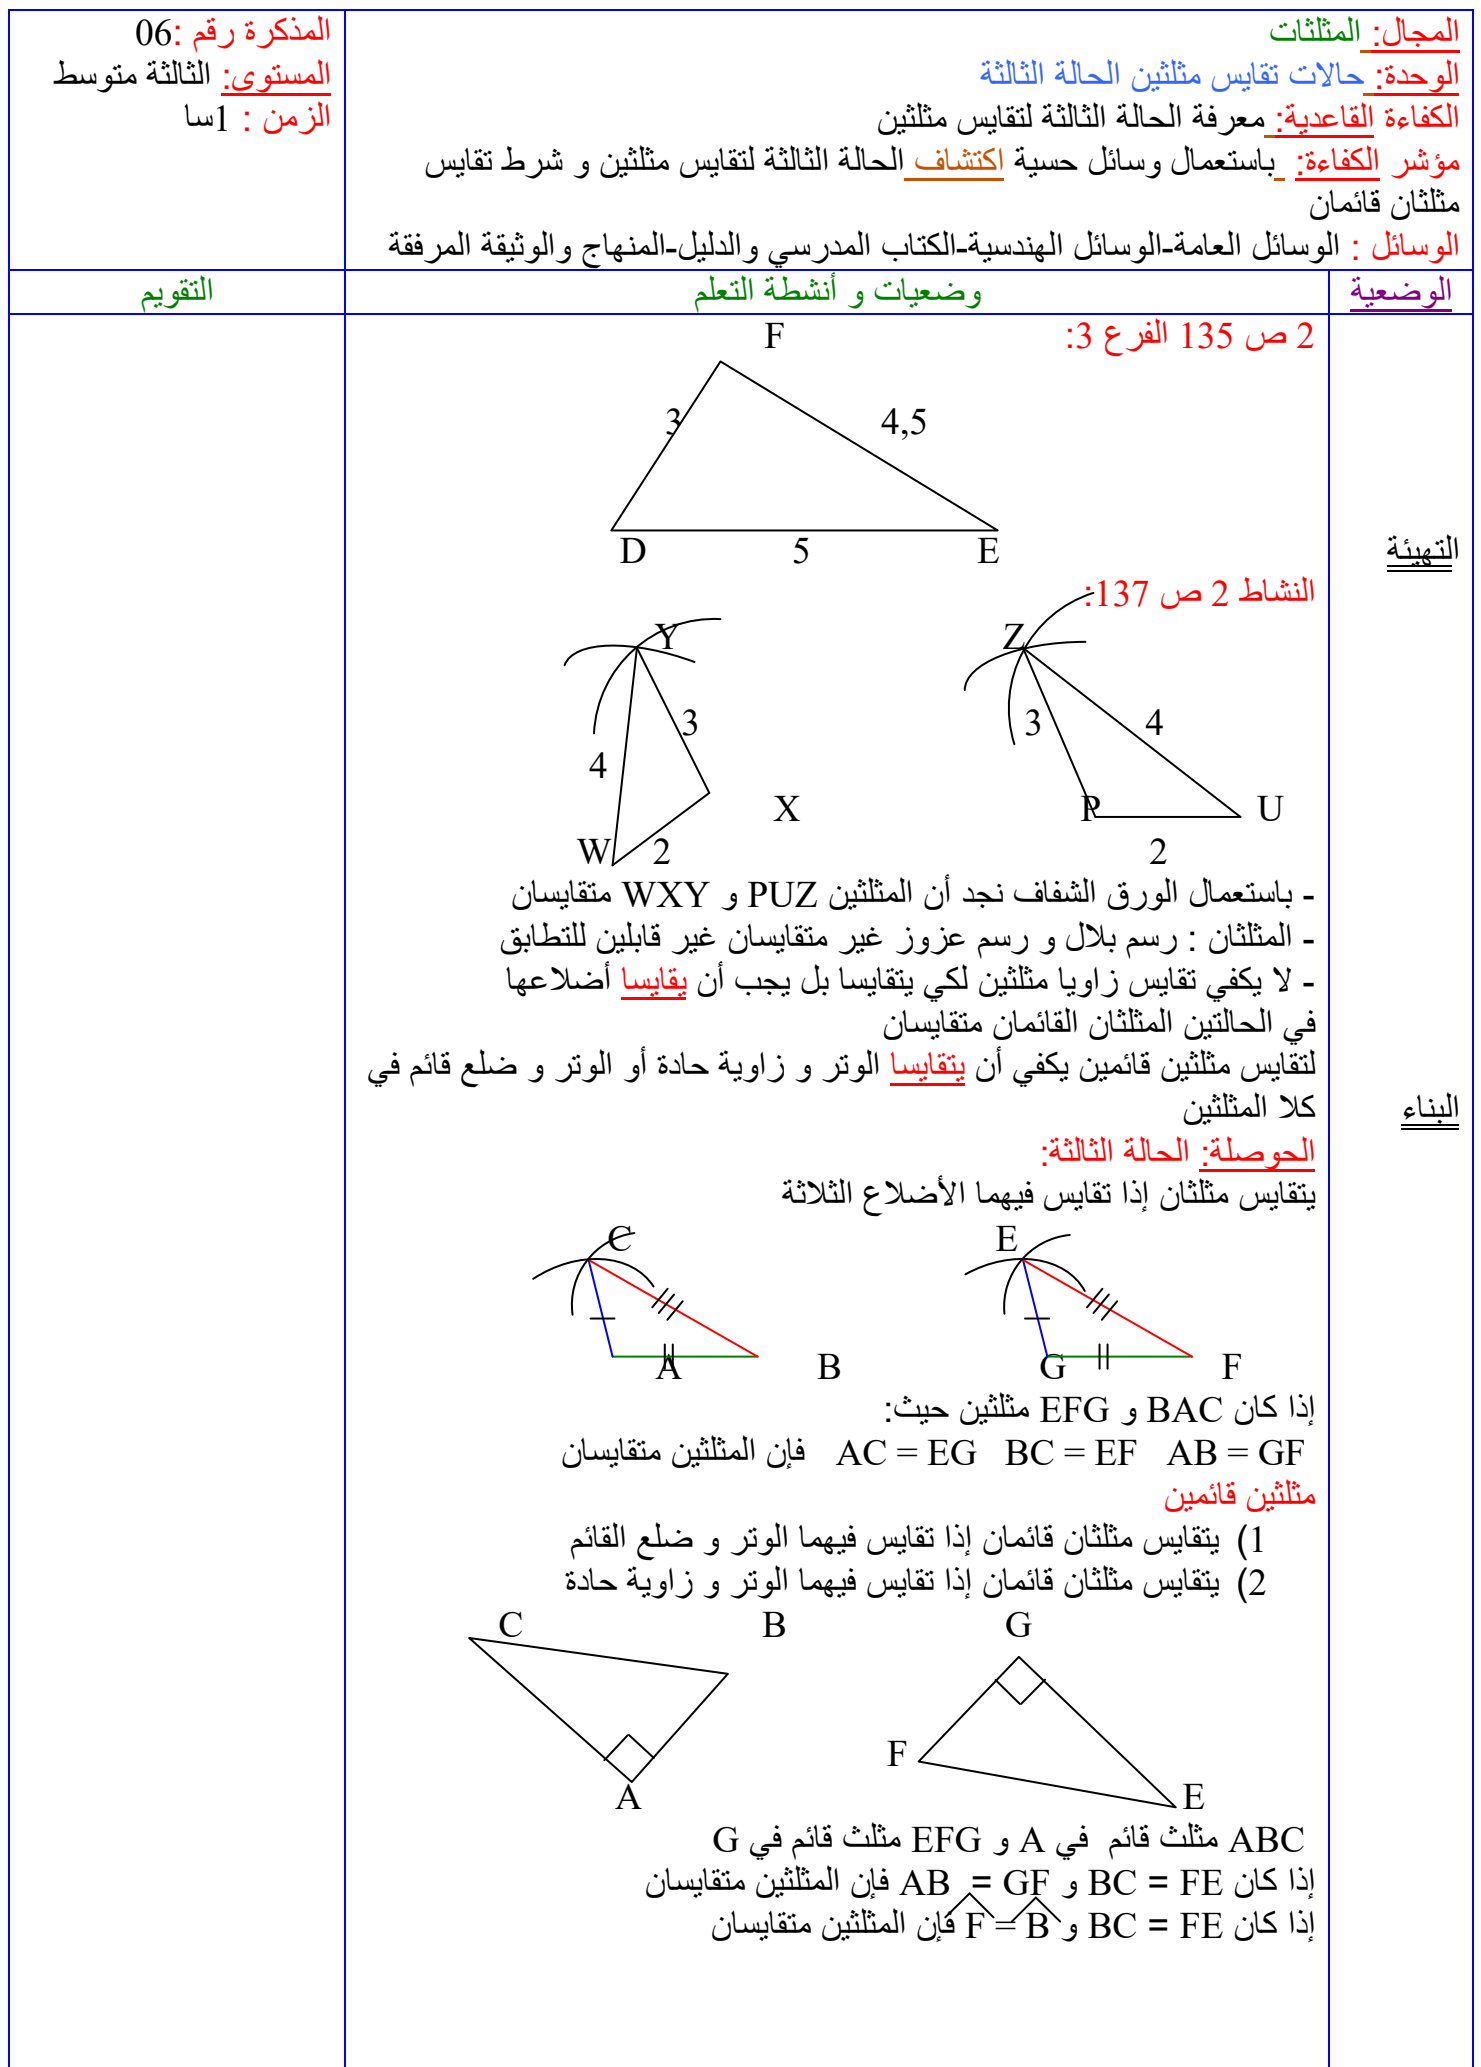 المجال: المثلثات
الوحدة: حالات تقايس مثلثين الحالة الثالثة
الكفاءة القاعدية: معرفة الحالة الثالثة لتقايس مثلثين
مؤشر الكفاءة: باستعمال وسائل حسية اكتشاف الحالة الثالثة لتقايس مثلثين و شرط تقايس
مثلثان قائمان
الوسائل : الوسائل العامة-الوسائل الهندسية-الكتاب المدرسي والدليل-المنهاج والوثيقة المرفقة
المذكرة رقم :06
المستوى: الثالثة متوسط
الزمن : 1سا
الوضعية
وضعيات و أنشطة التعلم
التقويم
التهيئة
2 ص 135 الفرع 3:
F
3
4,5
D
5
E
النشاط 2 ص 137:
Z
3
4
P
U
2
Y
3
4
X
W
2
- باستعمال الورق الشفاف نجد أن المثلثين PUZ و WXY متقايسان
- المثلثان : رسم بلال و رسم عزوز غير متقايسان غير قابلين للتطابق
- لا يكفي تقايس زاويا مثلثين لكي يتقايسا بل يجب أن يقايسا أضلاعها
في الحالتين المثلثان القائمان متقايسان
لتقايس مثلثين قائمين يكفي أن يتقايسا الوتر و زاوية حادة أو الوتر و ضلع قائم في
كلا المثلثين
البناء
الحوصلة: الحالة الثالثة:
يتقايس مثلثان إذا تقايس فيهما الأضلاع الثلاثة
E
G
F
C
A
B
إذا كان BAC و EFG مثلثين حيث:
AC = EG BC = EF AB = GF فإن المثلثين متقايسان
مثلثين قائمين
1) يتقايس مثلثان قائمان إذا تقايس فيهما الوتر و ضلع القائم
2) يتقايس مثلثان قائمان إذا تقايس فيهما الوتر و زاوية حادة
G
F
E
C
B
A
ABC مثلث قائم في A و EFG مثلث قائم في G
إذا كان BC = FE و AB = GF فإن المثلثين متقايسان
إذا كان BC = FE و F̂ = B̂ فإن المثلثين متقايسان